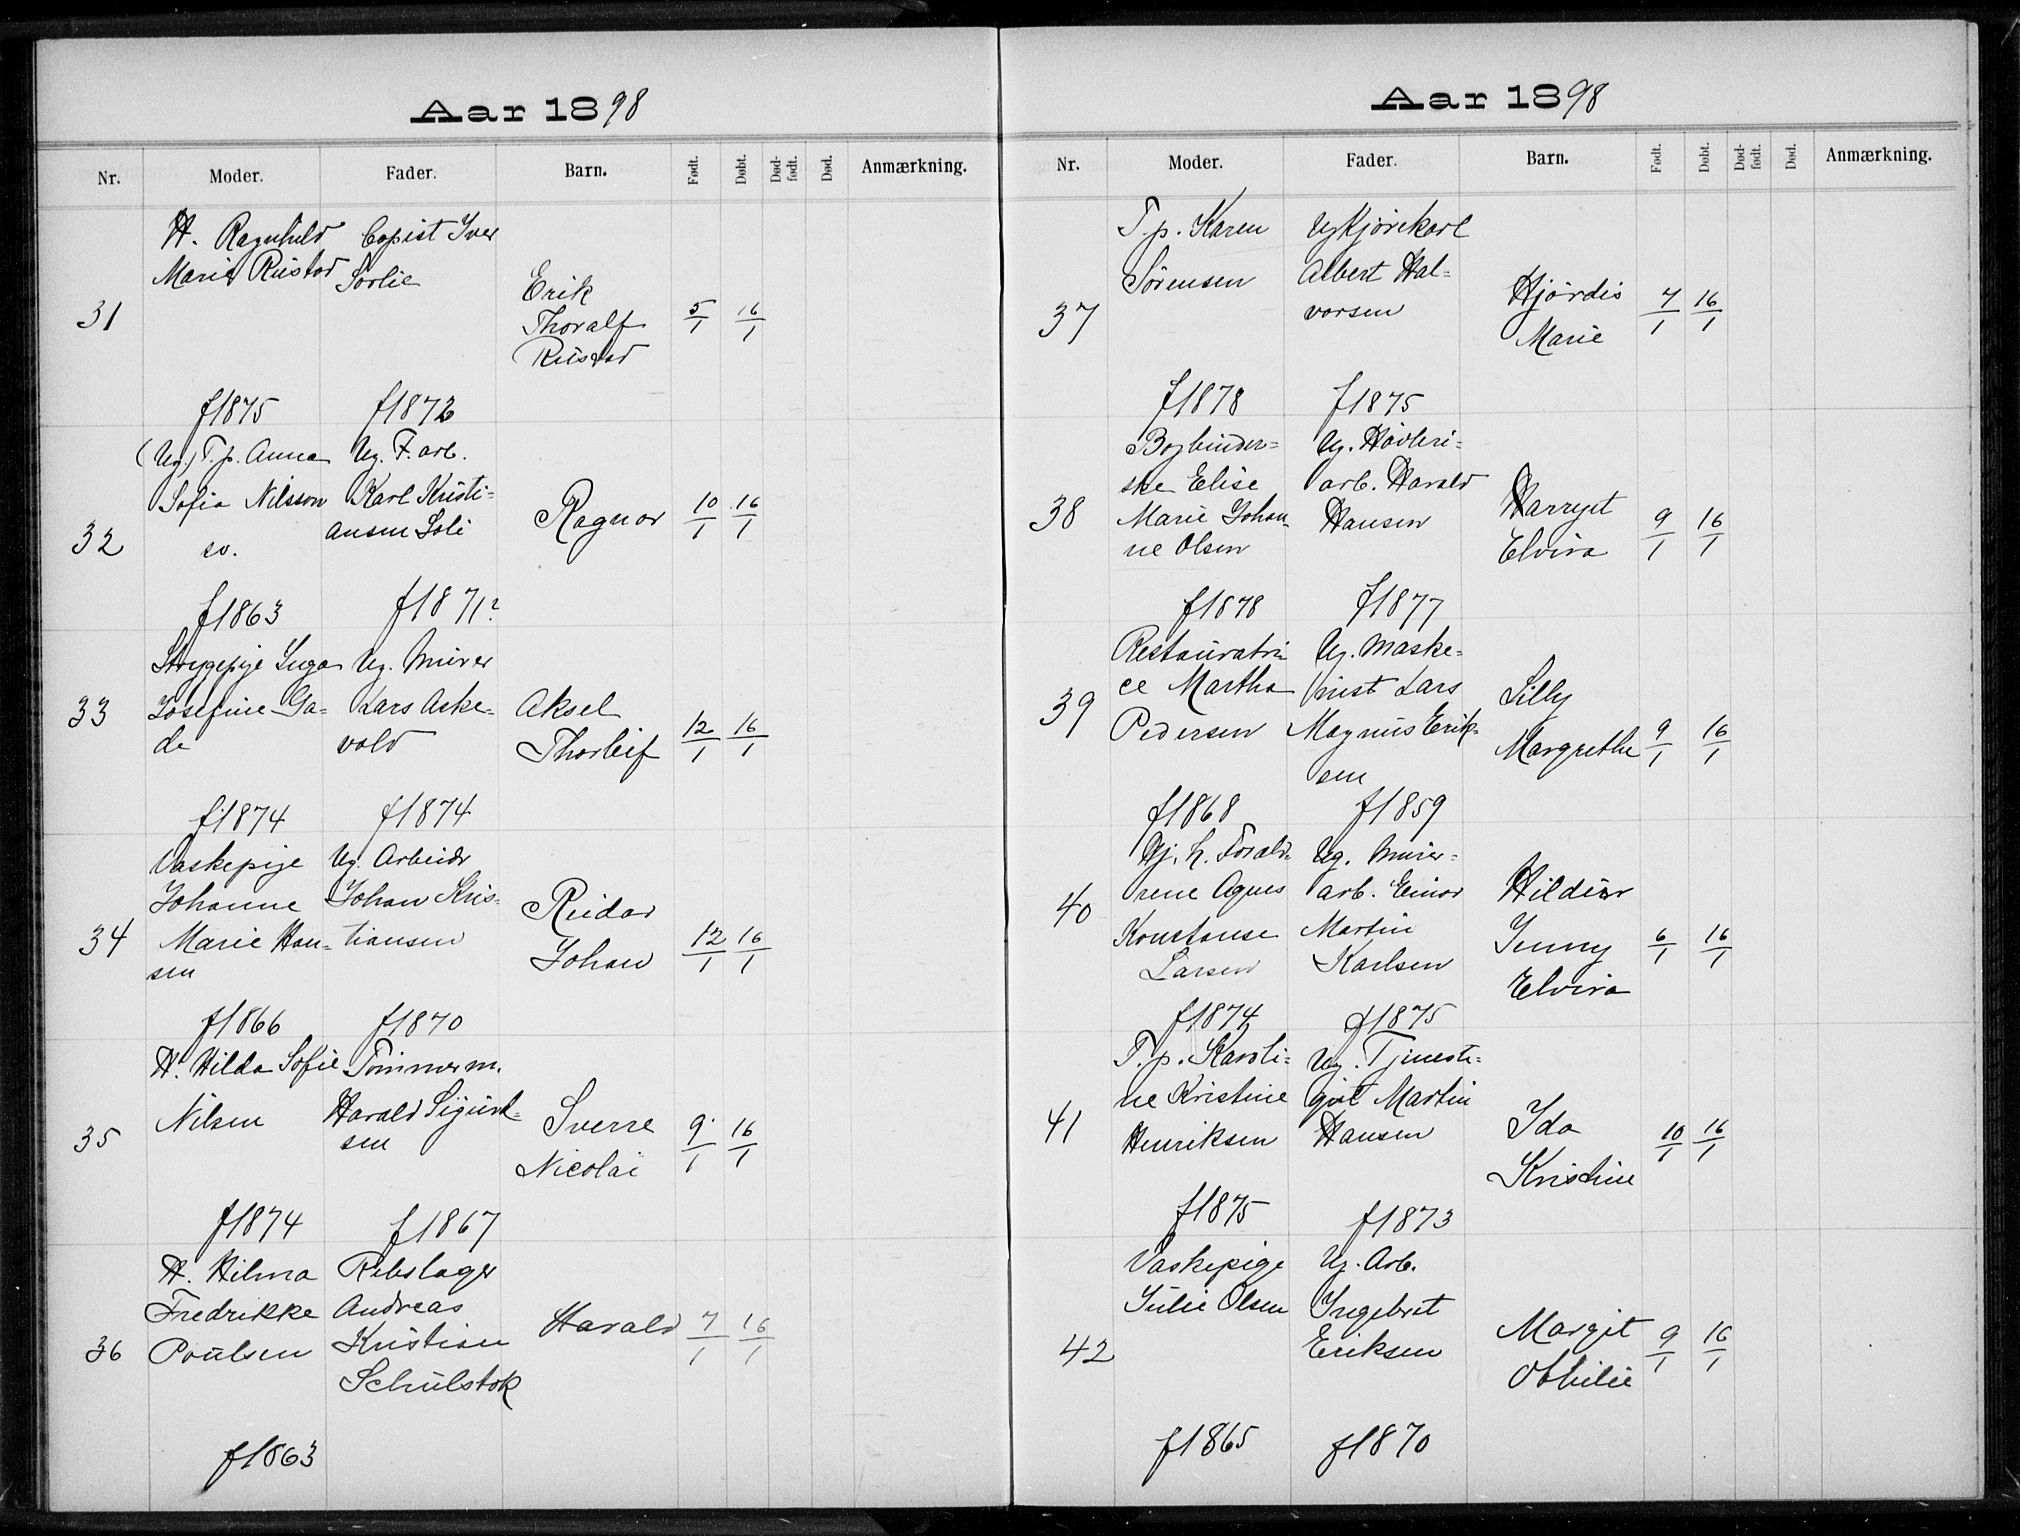 Aar 1898
Nr. Moder. Fader. Barn. Født. Døbt. Død-født. Død. Anmærkning.
31
H. Ragnhild
Marie Rustad
f 1875
Copist Iver
Sørlie
f 1872
Erik
Thoralf
Rustad
5/1 16/1
32
(Ug.) T.p. Anna
Sofia Nilsson
sv.
f 1863
Ug. F. arb.
Karl Kristi=
ansen Soli
f 1871?
Ragnar
10/1 16/1
33
Strygepije Inga
Josefine Ga=
de
f 1874
Ug. Murer
Lars Aske=
vold
f 1874
Aksel
Thorleif
12/1 16/1
34
Vaskepije
Johanne
Marie Han=
sen
f 1866
Ug. Arbeidr
Johan Kris=
tiansen
f 1870
Reidar
Johan
12/1 16/1
35
H. Hilda Sofie
Nilsen
f 1874
Tømmerm.
Harald Sigurd=
sen
f 1867
Sverre
Nicolai
9/1 16/1
36
H. Hilma
Fredrikke
Poulsen
f 1863
Rebslager
Andreas
Kristian
Schulstok
Harald
7/1 16/1
Aar 1898
Nr. Moder. Fader. Barn. Født. Døbt. Død-født. Død. Anmærkning.
37
T.p. Karen
Sørensen
f 1878
Ug Kjørekarl
Albert Hal=
vorsen
f 1875
Hjørdis
Marie
7/1 16/1
38
Bogbinder=
ske Elise
Marie Johan=
ne Olsen
f 1878
Ug. Høvleri=
arb. Harald
Hansen
f 1877
Harryet
Elvira
9/1 16/1
39
Restauratri
ce Martha
Pedersen
f 1868
Ug. Maske=
nist Lars
Magnus Erik=
sen
f 1859
Lilly
Margrethe
9/1 16/1
40
Hj. h. Foræld=
rene Agnes
Konstanse
Larsen
f 1874
Ug. Murer=
arb. Einar
Martin
Karlsen
f 1875
Hildur
Jenny
Elvira
6/1 16/1
41
T.p. Karoli=
ne Kristine
Henriksen
f 1875
Ug. Tjeneste=
gut Martin
Hansen
f 1873
Ida
Kristine
10/1 16/1
42
Vaskepige
Julie Olsen
f 1865
Ug. Arb.
Ingebret
Eriksen
f 1870
Margit
Othilie
9/1 16/1